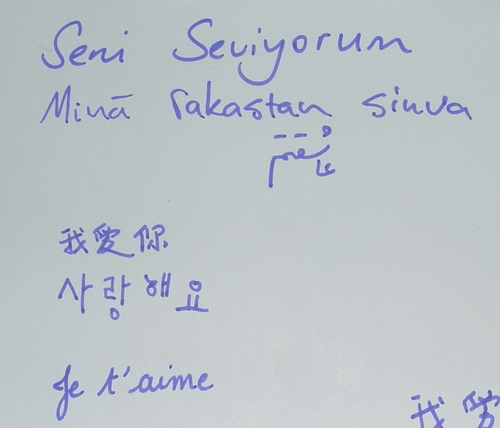 Seni Seviyorum
Minā rakastan sinva
我愛你
사랑해요
Je t'aime
我愛